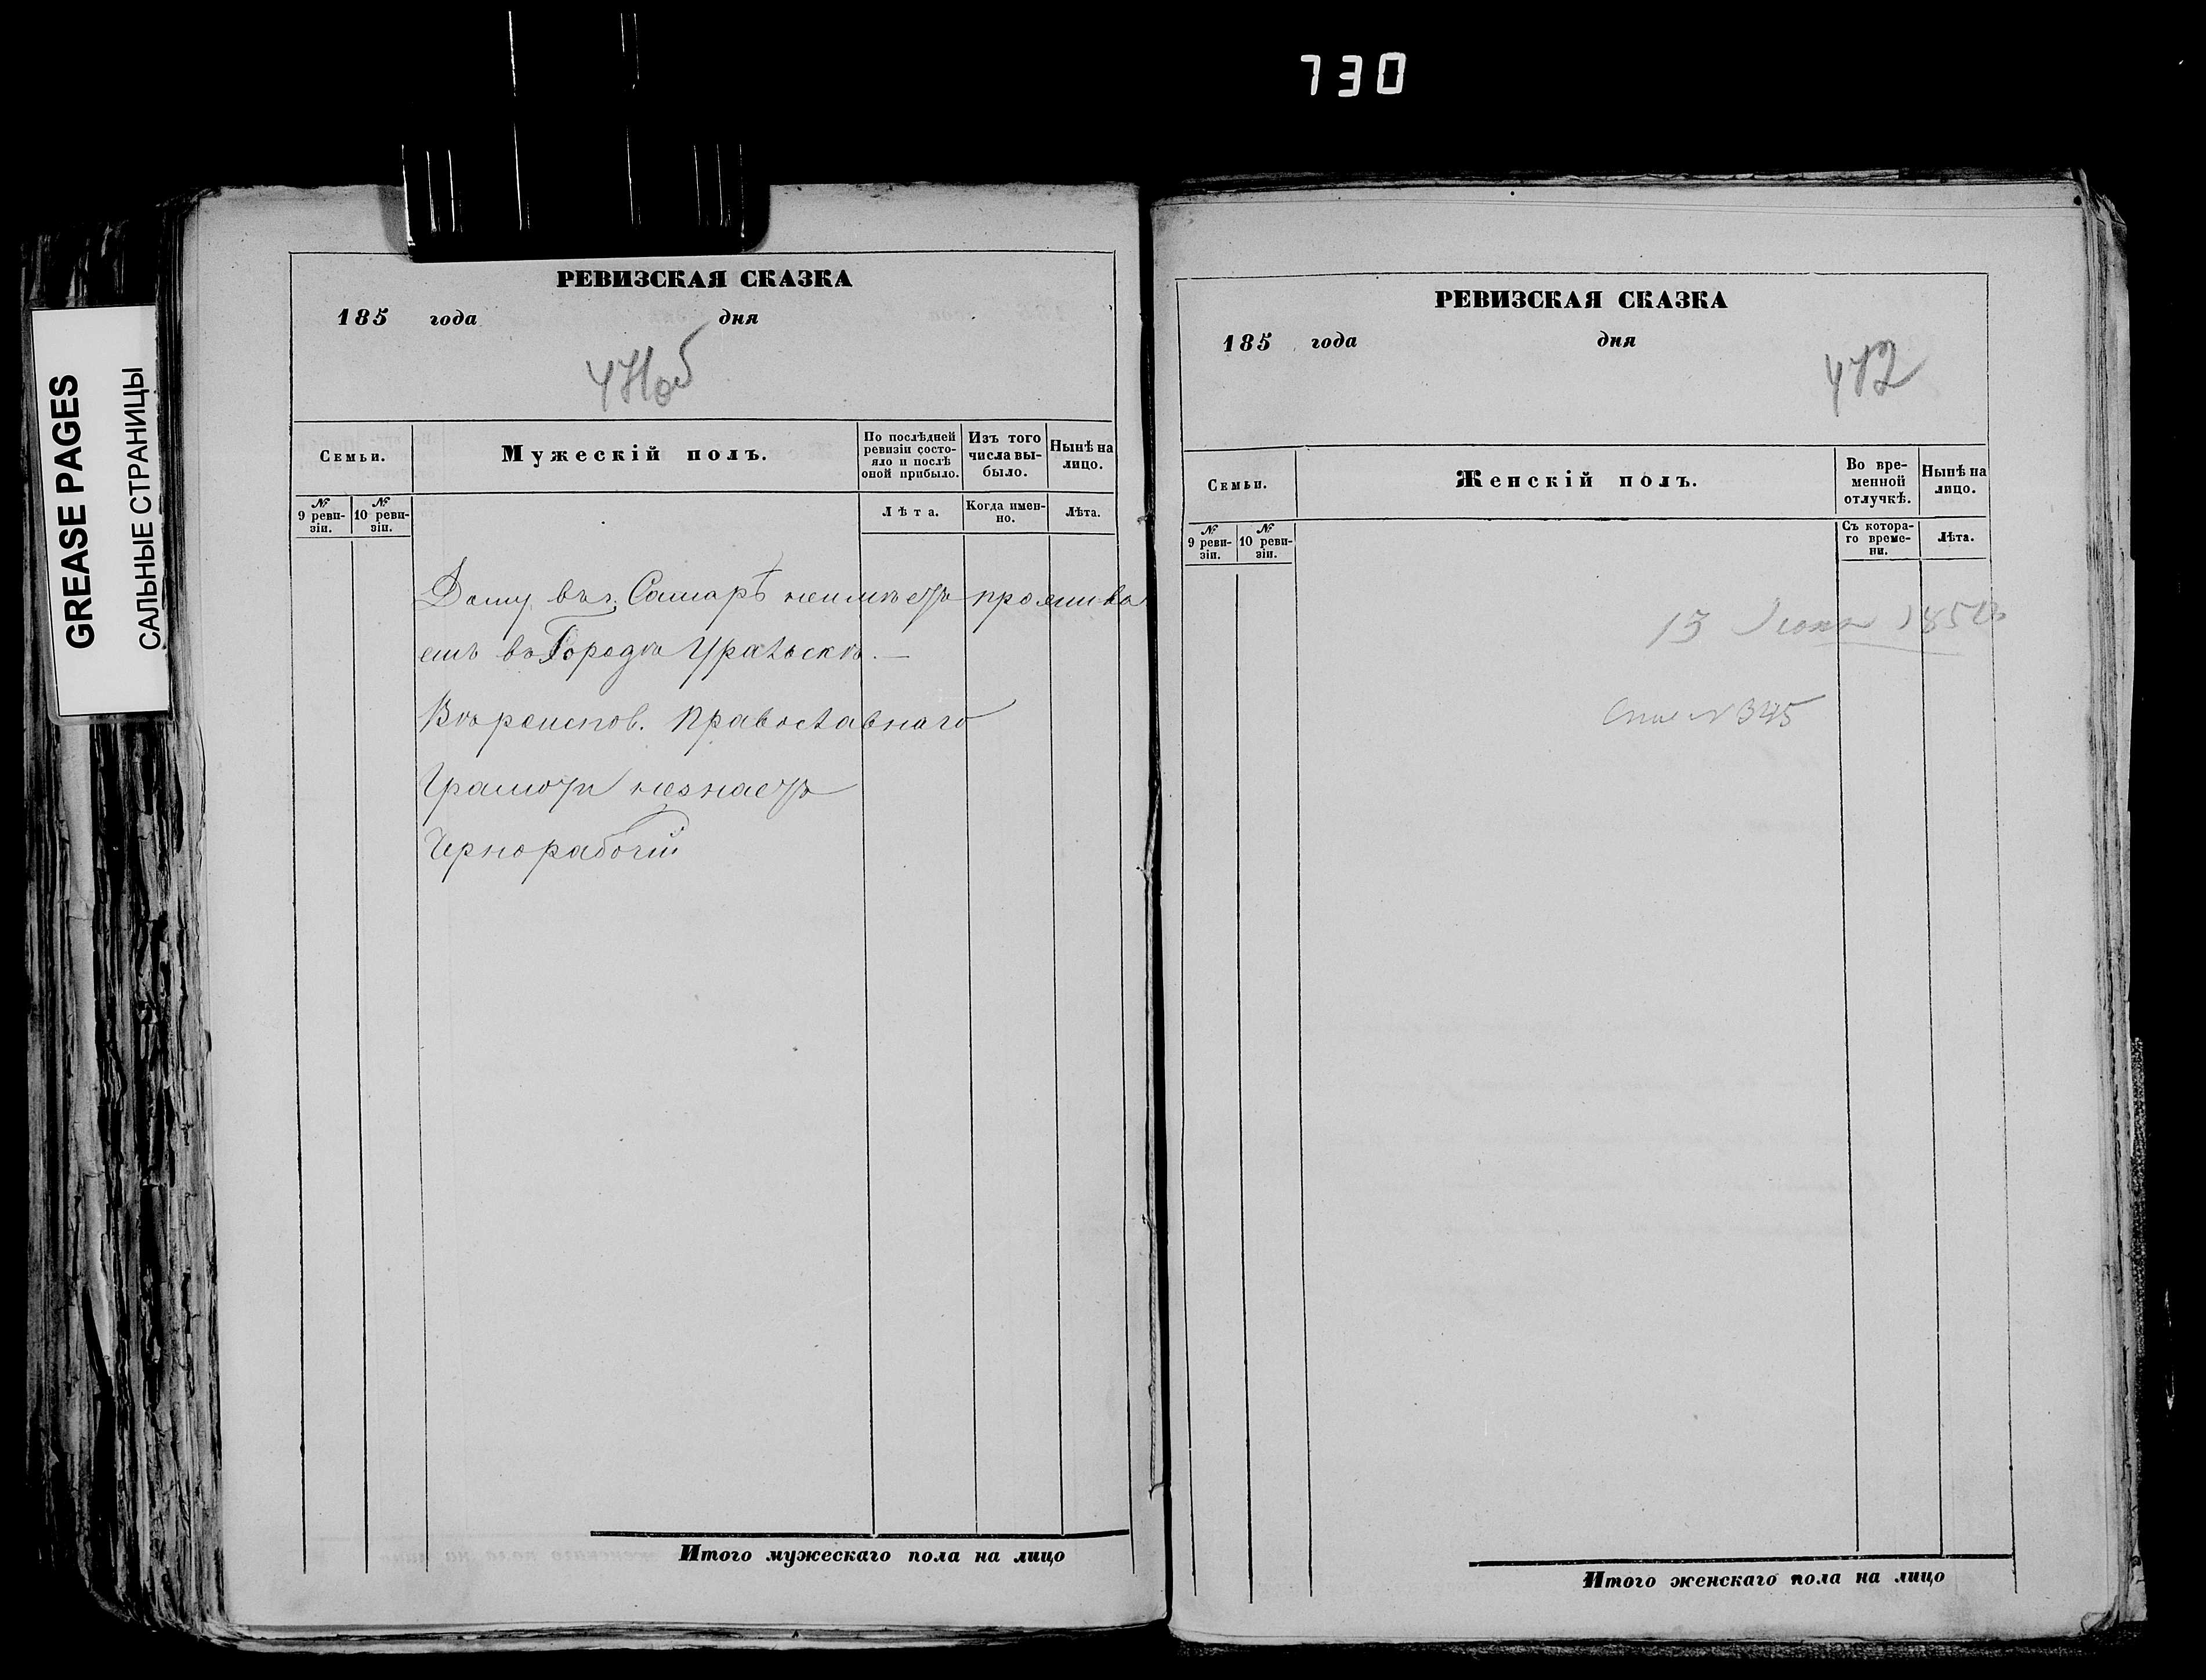 730
GREASE PAGES
САЛЬНЫЕ СТРАНИЦЫ
РЕВИЗСКАЯ СКАЗКА
185 года дня
471об
Семьи.
Мужескій полъ.
По послѣдней ревизіи состо-
яло и послѣ
оной прибыло.
Изъ того
числа вы-
было.
Нынѣ на
лицо.
№
9 реви-
зіи.
№
10 реви-
зіи.
Лѣта.
Когда имен-
но.
Лѣта.
Дому въ г. Самарѣ неимѣетъ прожива
етъ въ Городѣ Уральскѣ. —
Вѣроиспов. Православнаго
Грамоты незнаетъ
Чернорабочій
Итого мужескаго пола на лицо
РЕВИЗСКАЯ СКАЗКА
185 года дня
472
Семьи.
Женскій полъ.
Во вре-
менной
отлучкѣ.
Нынѣ на
лицо.
№
9 реви-
зіи.
№
10 реви-
зіи.
Съ котора-
го време-
ни.
Лѣта.
13
№ 345
Итого женскаго пола на лицо